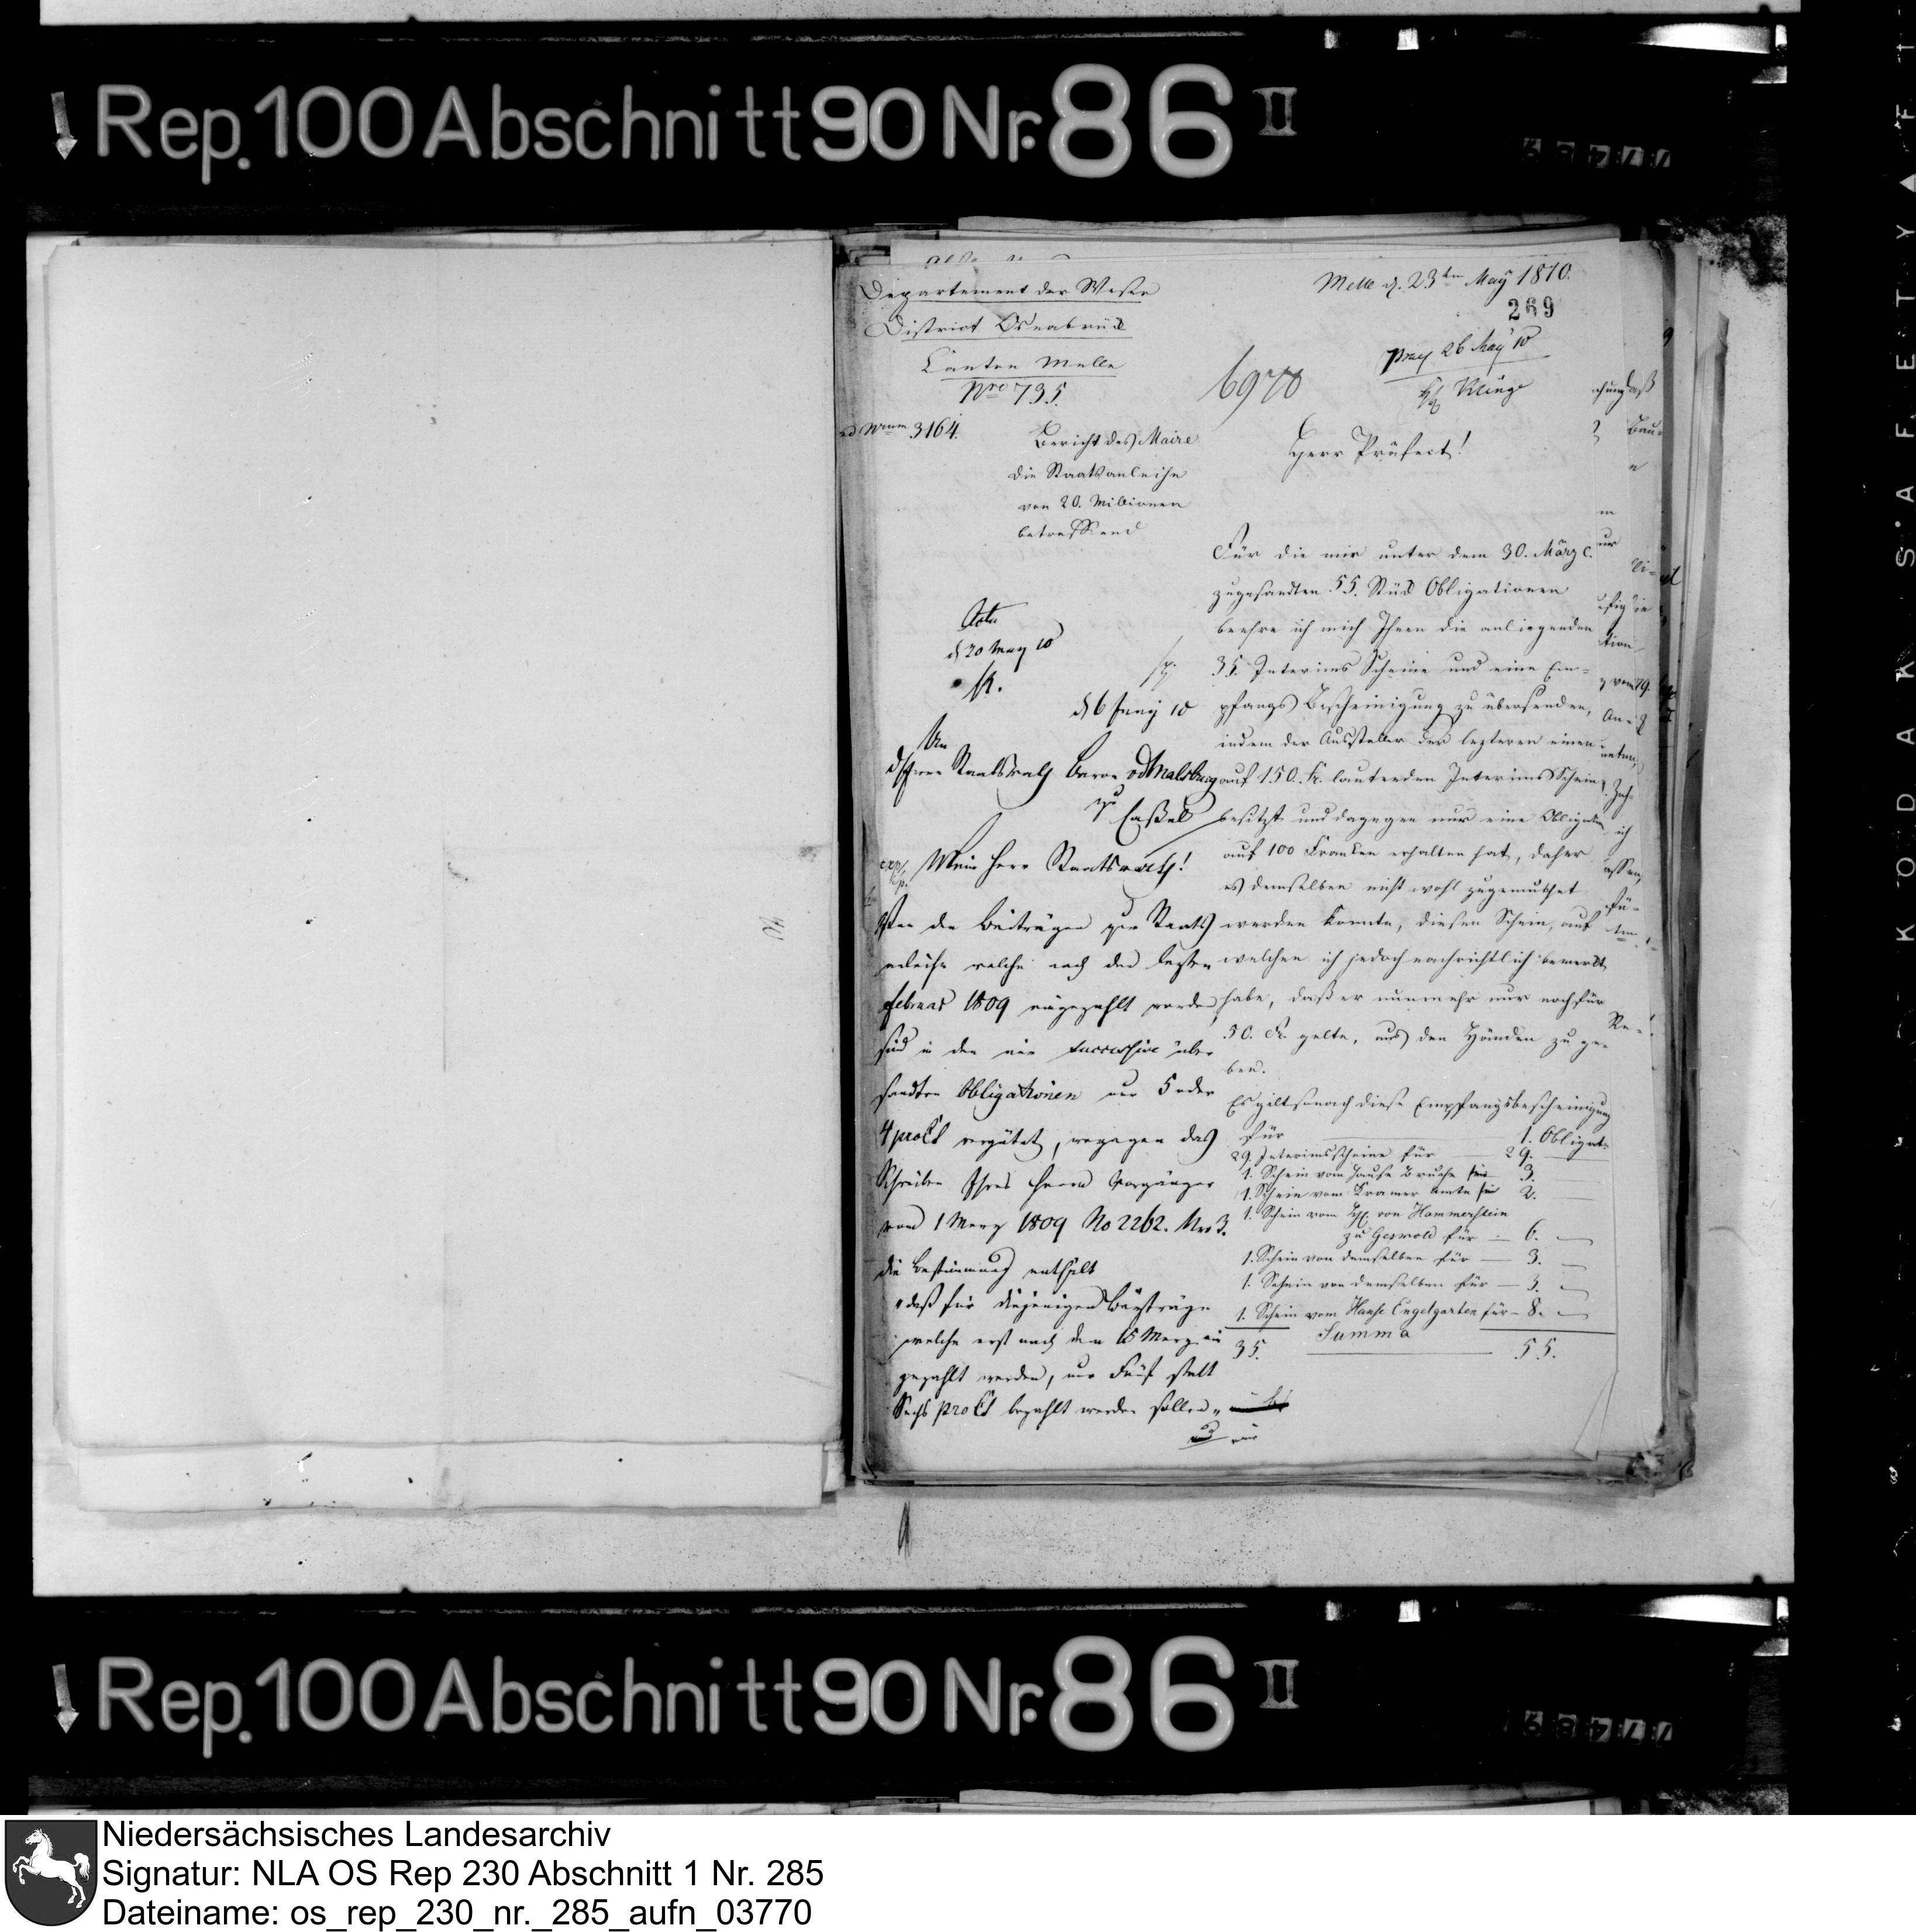 Rep. 100 Abschnitt 90 Nr. 86 II
Departement der Weser
District Osnabrück
Canton Melle
Nro 735.
ad Nrum 3164.
Bericht des Maire
die Staatsanleihe
von 20. Millionen
betreffend
Melle d. 23ten May 1810.
269
6970
praes 26 May 10
Klinge
Herr Präfect!
Für die mir unter dem 30. März c.
zugesandten 55. Stück Obligationen
beehre ich mich Ihnen die anliegenden
35. Interims Scheine und eine Em-
pfangs Bescheinigung zu übersenden,
indem der Aussteller der lezteren einen
auf 150. Fr. lautenden Interims Schein
besitzt und dagegen nur eine Obligation
auf 100 Franken erhalten hat, daher
es demselben nicht wohl zugemuthet
werden konnte, diesen Schein, auf
welchen ich jedoch nachrichtlich bemerkt
habe, daß er nunmehr nur noch für
50. Fr. gelte, aus den Händen zu ge-
ben.
Es gilt sonach diese Empfangsbescheinigung
für 1. Obligat.
29. Interimsscheine für 29.
1. Schein vom Hause Bruche für 3.
1. Schein vom Kramer Amte für 2.
1. Schein vom H. von Hammerstein
zu Gesmold für 6.
1. Schein von demselben für 3.
1. Schein von demselben für 3.
1. Schein vom Hause Engelgarten für 8.
35. Summa 55.
d 20 May 10
d 6 Juny 10
An
d Herrn Staatsrath Baron v d Malsburg
zu Caßel
Mein Herr Staatsrath!
Von den Beiträgen zur Staats
anleihe welche nach den lezten
Februar 1809 eingezahlt worden,
sind in den mir successive über
sandten Obligationen nur 5 oder
4 proCt vergütet, wogegen das
Schreiben Ihres Herrn Vorgänger
vom 1 Merz 1809 No 2262. Nro 3.
die Bestimmung enthält
"daß für diejenigen Beyträge
welche erst nach dem 15 Merz ein
gezahlt werden, nur Fünf statt
Sechs proCt bezahlt werden sollen"
Rep. 100 Abschnitt 90 Nr. 86 II
KODAK SAFETY
Niedersächsisches Landesarchiv
Signatur: NLA OS Rep 230 Abschnitt 1 Nr. 285
Dateiname: os_rep_230_nr._285_aufn_03770